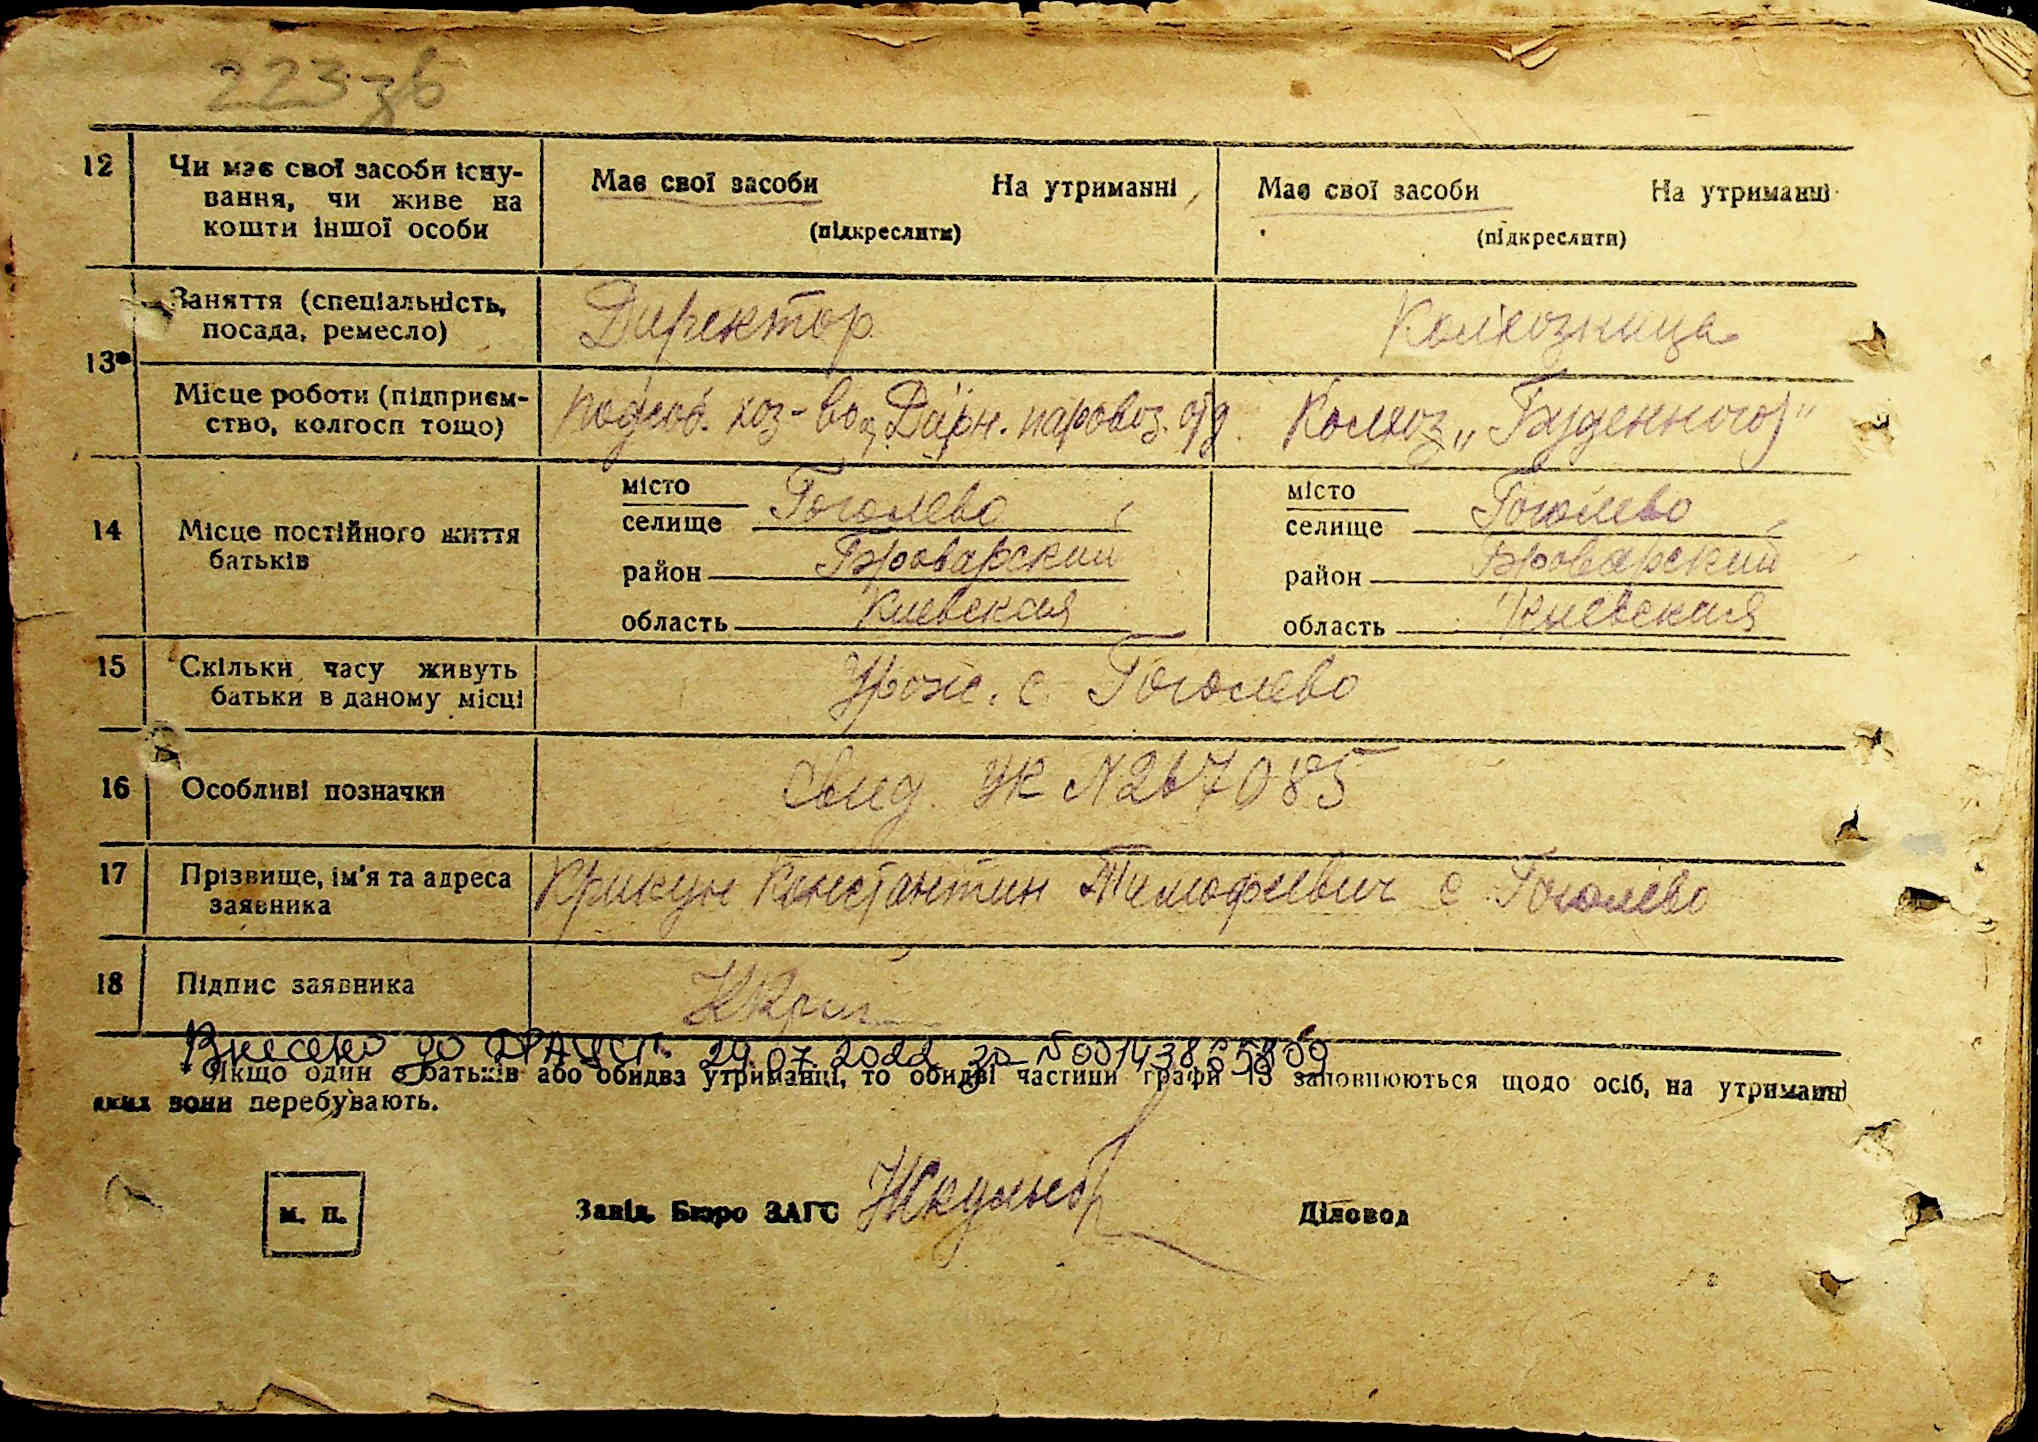 223 зв
12 Чи має свої засоби існу-
вання, чи живе на
кошти іншої особи
Має свої засоби На утриманні
(підкреслити)
Має свої засоби На утриманні
(підкреслити)
13*
Заняття (спеціальність,
посада, ремесло)
Директор
Колхозница
Місце роботи (підприєм-
ство, колгосп тощо)
Подсоб. хоз-ва Дарн. паровоз. отд.
Колхоз „Буденного"
14 Місце постійного життя
батьків
місто
селище Гоголево
район Броварский
область Киевская
місто
селище Гоголево
район Броварский
область Киевская
15 Скільки часу живуть
батьки в даному місці
Урож. с. Гоголево
16 Особливі позначки
Свид. УК N 267085
17 Прізвище, ім'я та адреса
заявника
Крикун Константин Тимофеевич с Гоголево
18 Підпис заявника
ККрик
Внесено до ДРАЦСГ 29.07.2022 за N 00143865809
* Якщо один з батьків або обидва утриманці, то обидві частини графи 13 заповнюються щодо осіб, на утриманні
яких вони перебувають.
м. п.
Завід. Бюро ЗАГС
Діловод